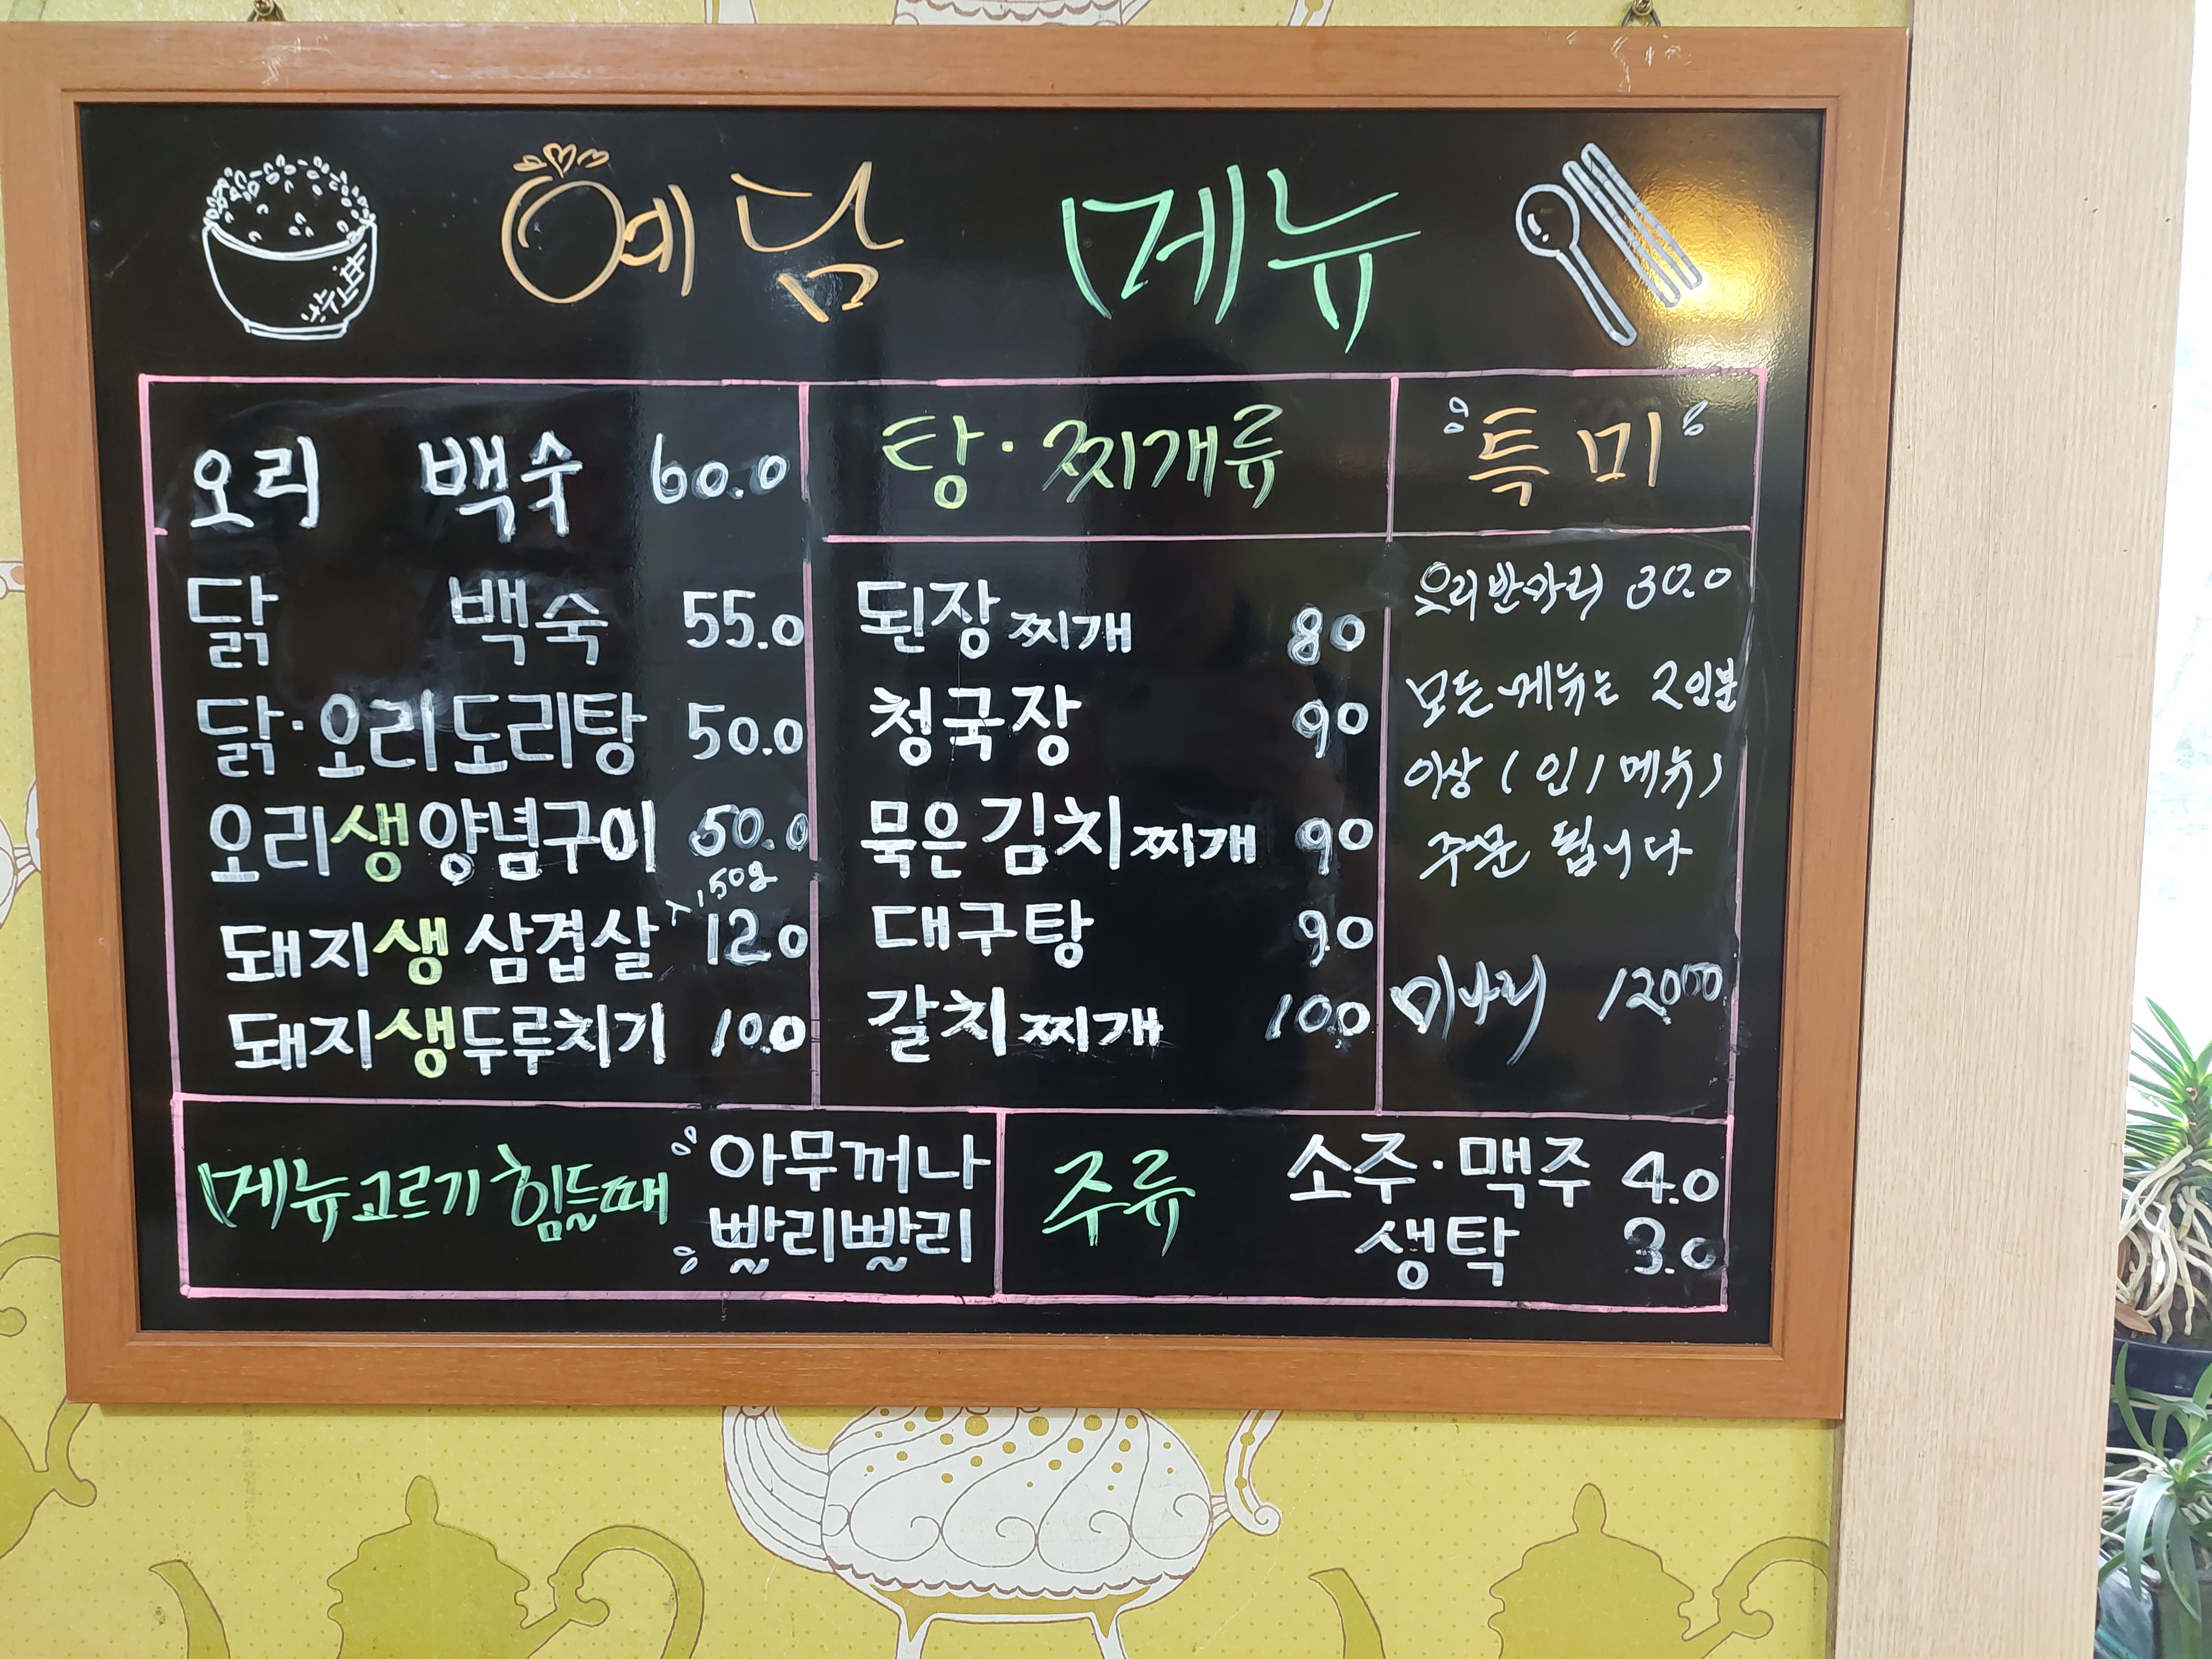 예담 메뉴
오리 백숙 60.0
닭 백숙 55.0
닭·오리도리탕 50.0
오리생양념구이 50.0
150g
돼지생삼겹살 120
돼지생두루치기 10.0
탕·찌개류
된장찌개 80
청국장 90
묵은김치찌개 90
대구탕 90
갈치찌개 100
특미
오리반마리 30.0
모든메뉴는 2인분
이상 (인1메뉴)
주문 됩니다
미나리 12000
메뉴고르기 힘들때
아무꺼나
빨리빨리
주류
소주·맥주 4.0
생탁 3.0